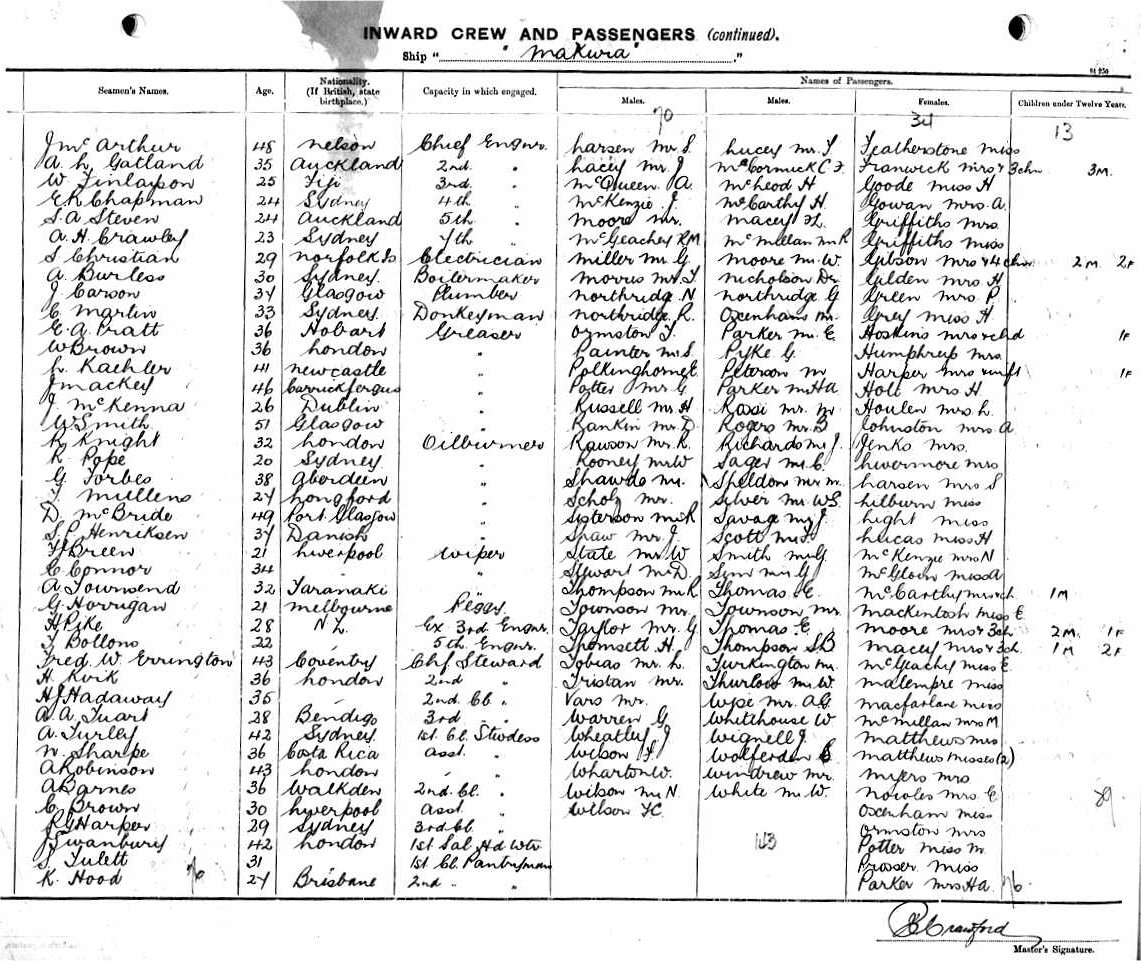 INWARD CREW AND PASSENGERS (continued).
Ship " "Makura" ."
Seamen's Names. Age. Nationality. (If British, state birthplace.) Capacity in which engaged. Names of Passengers.
Males. Males. Females. Children under Twelve Years.
70 34 13
J McArthur 48 Nelson Chief Engnr. Larsen Mr S. Lucey Mr T Featherstone Miss
A. L. Gatland 35 Auckland 2nd. " Lacey Mr. J. McCormick C F. Franwick Mrs & 3 chn 3 M.
W. Finlayson 25 Fiji 3rd. " McQueen A. McLeod H Goode Miss H
E R Chapman 24 Sydney 4th " McKenzie J. McCarthy H Gowan Mrs. A.
S. A Steven 24 Auckland 5th. " Moore Mr. Macey H. Griffiths Mrs
A. H. Crawley 23 Sydney 7th " McGeachey R M McMillan Mr R Griffiths Miss
S Christian 29 Norfolk Is Electrician Miller Mr. G Moore Mr. W. Gibson Mrs & 4 chn 2 M 2 F
A. Burless 30 Sydney. Boilermaker Morris Mr. T Nicholson Dr. Gilden Mrs H
J Carson 34 Glasgow Plumber Northridge N Northridge G Green Mrs. P.
C Martin 33 Sydney. Donkeyman Northridge R. Oxenham M. Grey Miss H
E. A. Pratt 36 Hobart Greaser Ormston T. Parker Mr. E. Hoskins Mrs & chd 1F
W Brown 36 London " Painter Mr S. Pyke G. Humphrup Mrs.
L. Kaehler 41 Newcastle " Polkinghorne E Peterson M Harper Mrs & inft 1F
J Mackey 46 Carrickfergus " Potter Mr G Parker Mr H A Holt Mrs H
J. McKenna 26 Dublin " Russell Mr. H Rossi Mr. M Houlen Mrs L.
W Smith 51 Glasgow " Rankin Mr. D. Rogers Mr. B Johnston Mrs. A
R Knight 32 London Oilburner Rawson Mr. R. Richards Mr J. Jenks Mrs.
R Pope 20 Sydney " Rooney Mr W Sager Mr. C. Livermore Mrs
G. Forbes 38 Aberdeen " Shawde Mr. Sheldon Mr M. Larsen Mrs S
T. Mullens 27 Longford " Scholz Mr. Silver Mr. W S. Lilburn Miss
D. McBride 49 Port Glasgow " Sisterson Mr R Savage Mr J. Light Miss
S. P. Henriksen 37 Danish " Shaw Mr. J. Scott Mr. T. Lucas Miss H
F J Breen 21 Liverpool Wiper State Mr W. Smith Mr G. McKenzie Mrs N
C Connor 34 " " Stewart Mr D. Sym Mr G McGloin Miss A
A. Townsend 32 Taranaki Thompson Mr R Thomas E. McCarthy Mrs & ch 1 M
G. Horrigan 21 Melbourne Peggy. Townson Mr. Townson Mr. Mackintosh Miss E
H Pike 28 N.Z. Ex. 3rd Engnr. Taylor Mr. G. Thomas E. Moore Mrs & 3 ch 2 M. 1 F
T. Bollons 22 " 5th. Engnr. Thomsett H. Thompson S B Macey Mrs & 3 ch. 1 M 2 F
Fred. W. Errington 43 Coventry Chf Steward Tobias Mr. L. Turkington M. McGeachy Miss E
H. Kvik 36 London 2nd " Tristan Mr. Thurlow Mr. W Malempre Miss
H J Hadaway 35 " 2nd. Cl. " Vars Mr. Wise Mr. A G. Macfarlane Miss
A. A. Tuart 28 Bendigo 3rd " Warren G Whitehouse W McMillan Mrs M
A. Turley 42 Sydney 1st. Cl. Stwdess Wheatley J Wignell J. Matthews Mrs
N. Sharpe 36 Costa Rica Asst. " Wilson F. Wolferden C Matthews Misses (2)
A Robinson 43 London " " Wharton W. Windrew Mr. Myers Mrs
A Barnes 36 Walkden 2nd. Cl. " Wilson Mr. N White Mr. W. Nowles Mrs. E
C Brown 30 Liverpool Asst " Wilson T C. Oxenham Miss 89
R G Harper 29 Sydney 3rd Cl " Ormston Mrs
J Swanbury 42 London 1st Sal Hd Wtr 143 Potter Miss M.
J Tulett 31 1st. Cl. Pantryman Prosser Miss
K. Hood 27 Brisbane 2nd " " Parker Mrs H A.
Crawford
Master's Signature.